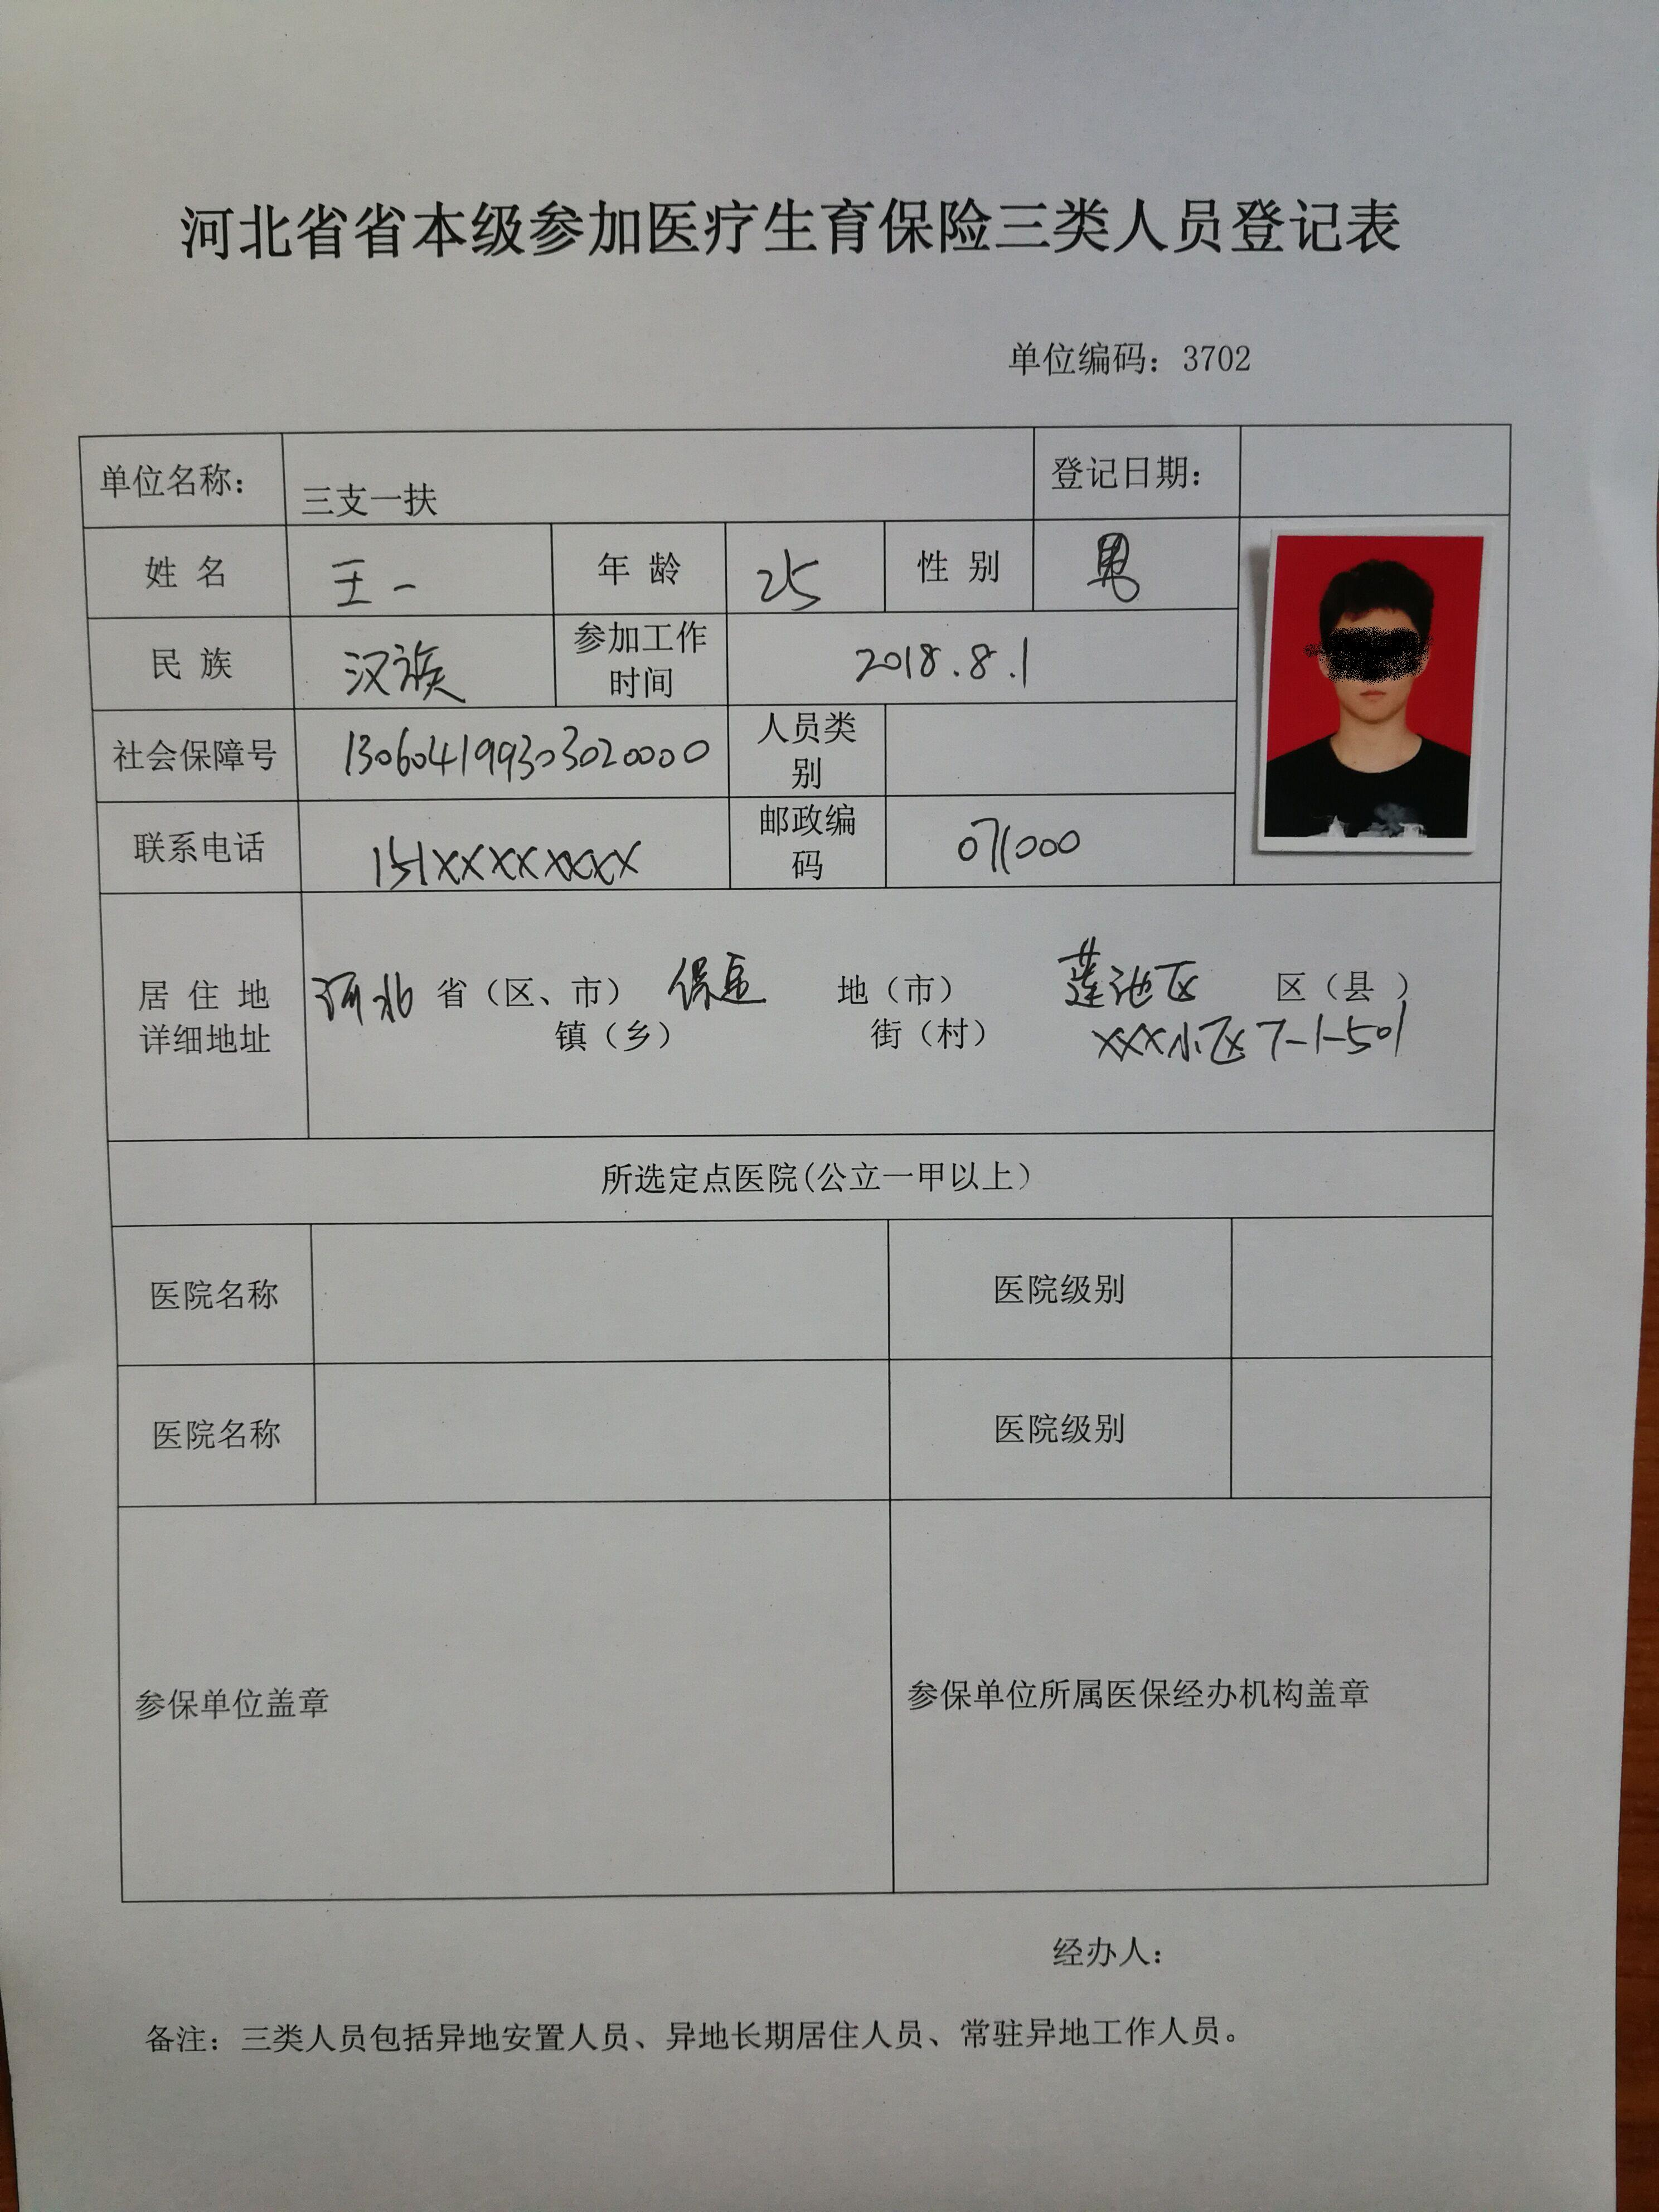 河北省省本级参加医疗生育保险三类人员登记表
单位编码：3702
单位名称： 三支一扶 登记日期：
姓 名 王一 年 龄 25 性 别 男
民 族 汉族 参加工作时间 2018.8.1
社会保障号 130604199303020000 人员类别
联系电话 151XXXXXXXX 邮政编码 071000
居 住 地 河北 省（区、市） 保定 地（市） 莲池区 区（县）
详细地址 镇（乡） 街（村） XXX小区7-1-501
所选定点医院(公立一甲以上）
医院名称 医院级别
医院名称 医院级别
参保单位盖章 参保单位所属医保经办机构盖章
经办人：
备注：三类人员包括异地安置人员、异地长期居住人员、常驻异地工作人员。